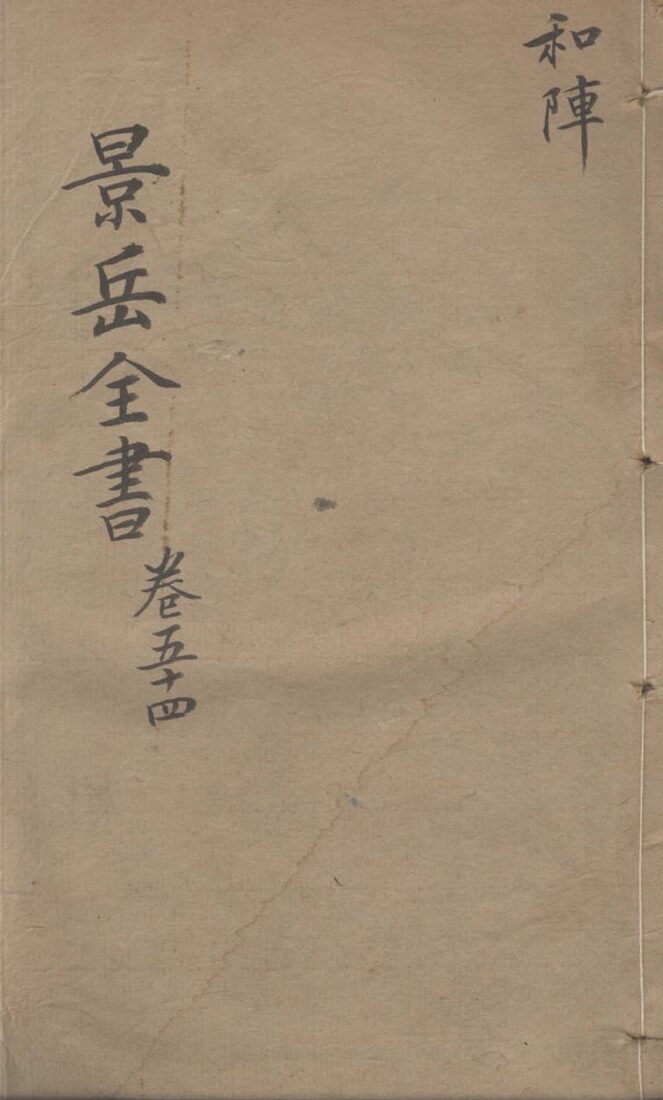 和陣
景岳全書
卷五十四